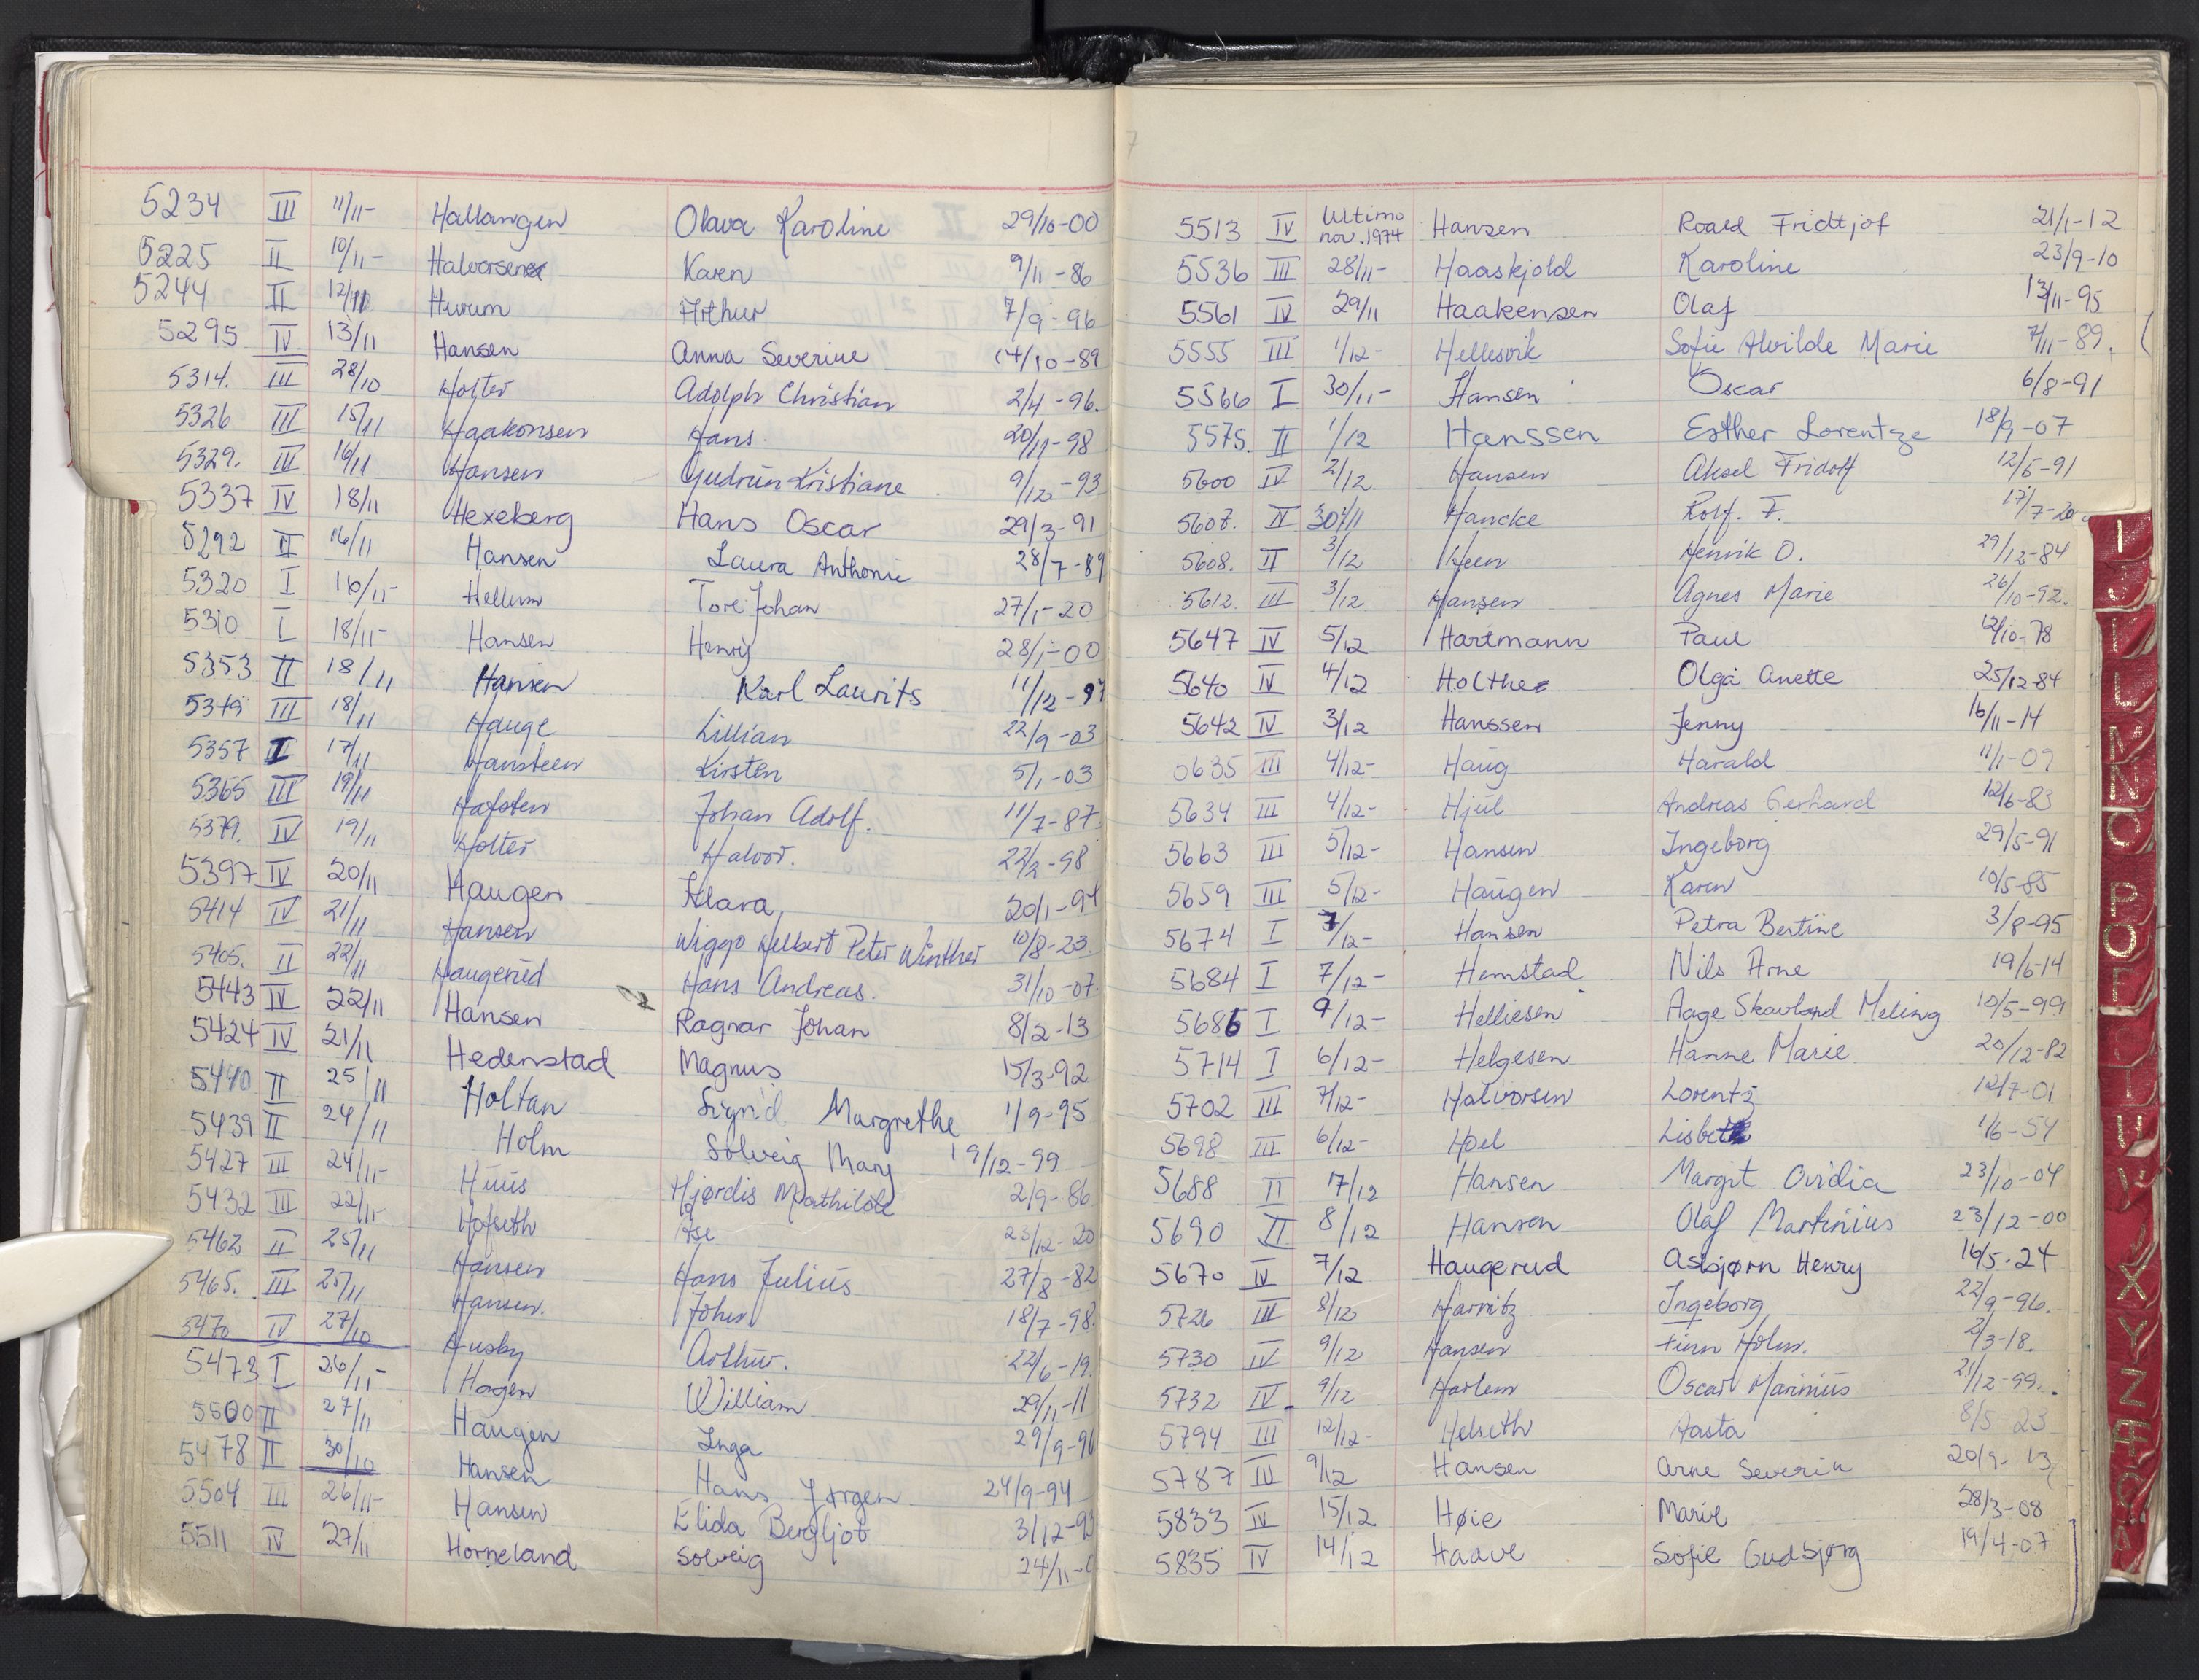 5234 III 11/11- Hallangen Olava Karoline 29/10-00
5225 II 10/11- Halvorsen Karen 9/11-86
5244 II 12/11 Hurum Arthur 7/9-96
5295 IV 13/11 Hansen Anna Severine 14/10-89
5314. III 28/10 Holter Adolph Christian 2/4-96.
5326 III 15/11 Haakonsen Hans. 20/11-98
5329. III 16/11 Hansen Gudrun Kristiane 9/12-93
5337 IV 18/11 Hexeberg Hans Oscar 29/3-91
5292 II 16/11 Hansen Laura Anthonie 28/7-89
5320 I 16/11- Hellum Tore Johan 27/1-20
5310 I 18/11- Hansen Henry 28/1-00
5353 II 18/11 Hansen Karl Laurits 11/12-97
5349 III 18/11 Hauge Lillian 22/9-03
5357 I 17/11 Hansteen Kirsten 5/1-03
5365 III 19/11 Hafsten Johan Adolf. 11/7-87.
5379. IV 19/11 Holter Halvor. 22/2-98
5397 IV 20/11 Haugen Klara 20/1-94
5414 IV 21/11 Hansen Wiggo Helbert Peter Winther 10/8-23.
5405. II 22/11 Haugerud Hans Andreas. 31/10-07.
5443 IV 22/11 Hansen Ragnar Johan 8/2-13
5424 IV 21/11 Hedenstad Magnus 15/3-92
5440 II 25/11 Holtan Sigrid Margrethe 1/9-95
5439 II 24/11 Holm Solveig Mary 19/12-99
5427 III 24/11- Huus Hjørdis Mathilde 2/9-86
5432 III 22/11- Hofseth 23/12-20
5462 II 25/11 Hansen Hans Julius 27/8-82
5465. III 25/11 Hansen. Johs 18/7-98.
5470 IV 27/10 Husby Arthur. 22/6-19.
5473 I 26/11- Hagen William 29/11-11
5500 II 27/11 Haugen Inga 29/9-96
5478 II 30/10 Hansen Hans Jørgen 24/9-94
5504 III 26/11- Hansen Elida Bergljot 3/12-93
5511 IV 27/11 Horneland Solveig 24/11-0
5513 IV Ultimo nov. 1974 Hansen Roald Fridtjof 21/1-12
5536 III 28/11- Haaskjold Karoline 23/9-10
5561 IV 29/11 Haakensen Olaf 13/11-95
5555 III 1/12- Hellesvik Sofie Alvilde Marie 7/11-89.
5566 I 30/11- Hansen Oscar 6/8-91
5575. II 1/12 Hanssen Esther Lorentze 18/9-07
5600 IV 2/12. Hansen Aksel Fridolf 12/5-91
5607. II 30/11 Hancke Rolf. F. 17/7-20
5608. II 3/12 Heen Henrik O. 29/12-84
5612. III 3/12 Hansen Agnes Marie 26/10-92.
5647 IV 5/12 Hartmann Paul 12/10-78
5640 IV 4/12 Holthe Olga Anette 25/12-84
5642 IV 3/12 Hanssen Jenny 16/11-14
5635 III 4/12- Haug Harald 11/1-09
5634 III 4/12- Hjul Andreas Gerhard 12/6-83
5663 III 5/12- Hansen Ingeborg 29/5-91
5659 III 5/12- Haugen Karen 10/5-85
5674 I 7/12- Hansen Petra Bertine 3/8-95
5684 I 7/12- Hemstad Nils Arne 19/6-14
5686 I 9/12- Helliesen Aage Skavland Meling 10/5-99
5714 I 6/12- Helgesen Hanne Marie 20/12-82
5702 III 7/12- Halvorsen Lorentz 12/7-01
5698 III 6/12- Hoel Lisbeth 1/6-54
5688 II 7/12 Hansen Margit Ovidia 23/10-04
5690 II 8/12 Hansen Olaf Martinius 23/12-00
5670 IV 7/12 Haugerud Asbjørn Henry 16/5.24
5726 III 8/12 Harnitz Ingeborg 22/9-96.
5730 IV 9/12 Hansen Finn Holm. 2/3-18.
5732 IV. 9/12 Harlem Oscar Marinius 21/12-99.
5794 III 12/12- Helseth Aasta 8/5 23
5787 III 9/12 Hansen Arne Severin 20/9-13
5833 IV 15/12 Høie Marie 28/3-08
5835 IV 14/12 Haave Sofie Gudbjørg 19/4-07